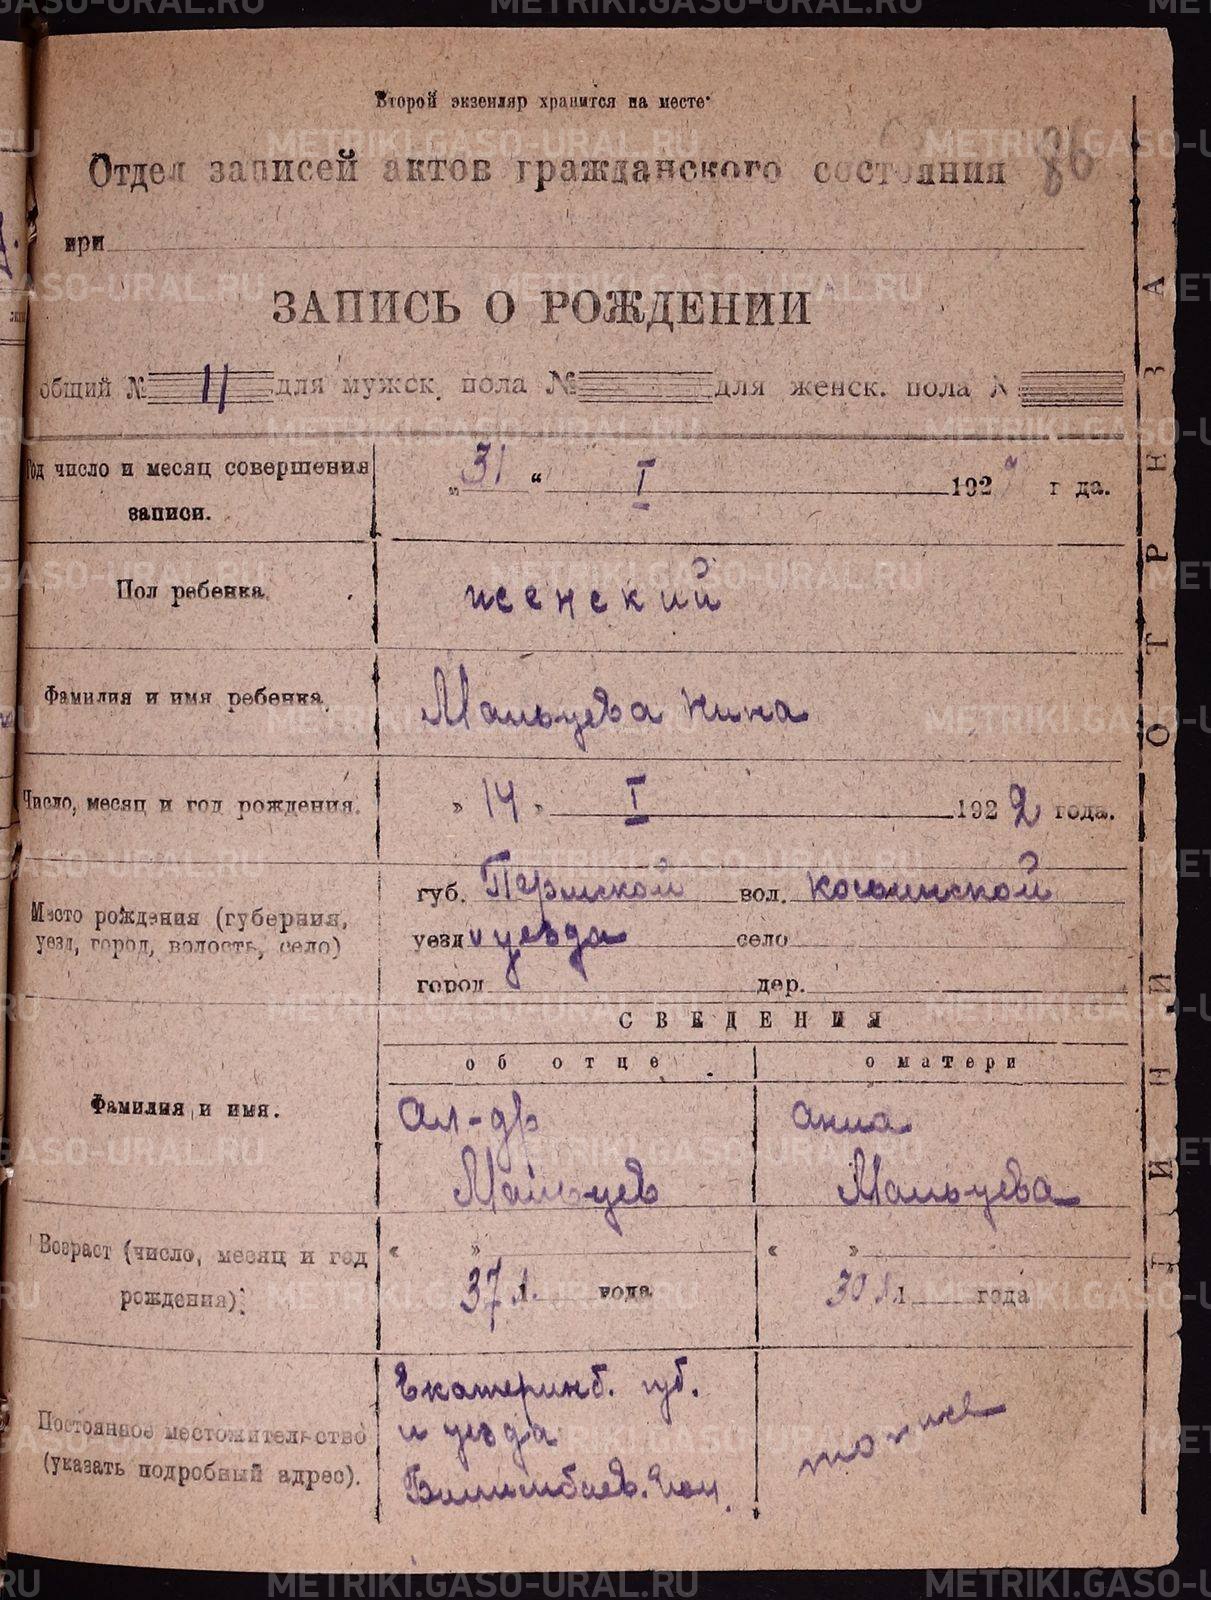 Второй экземляр хранится на месте
86
Отдел записей актов гражданского состояния
при
ЗАПИСЬ О РОЖДЕНИИ
общий № 11 для мужск. пола № для женск. пола №
Год число и месяц совершения „31“ I 192 года.
записи.
Пол ребенка женский
Фамилия и имя ребенка. Мальцева Нина
Число, месяц и год рождения. » 14 » I 1922 года.
Место рождения (губерния, губ. Пермской вол.
уезд, город, волость, село) уезд и уезда село
город дер.
СВЕДЕНИЯ
об отце о матери
Фамилия и имя. Ал-др Анна
Мальцев Мальцева
Возраст (число, месяц и год « » « »
рождения). 37 л. года 30 л. года
Постоянное местожительство Екатеринб. губ. тоже
(указать подробный адрес). и уезда
Билимбаев.
ЛИНИЯ ОТРЕЗА
METRIKI.GASO-URAL.RU